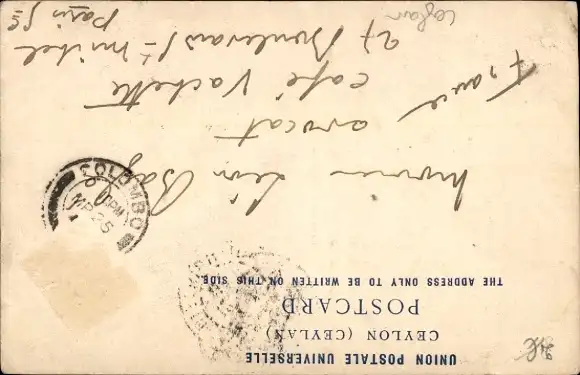 UNION POSTALE UNIVERSELLE
CEYLON (CEYLAN)
POSTCARD
THE ADDRESS ONLY TO BE WRITTEN ON THIS SIDE
COLOMBO
PM
25
Monsieur Léon
avocat
café Vachette
27 Boulevard St Michel
Paris
France
Ceylan